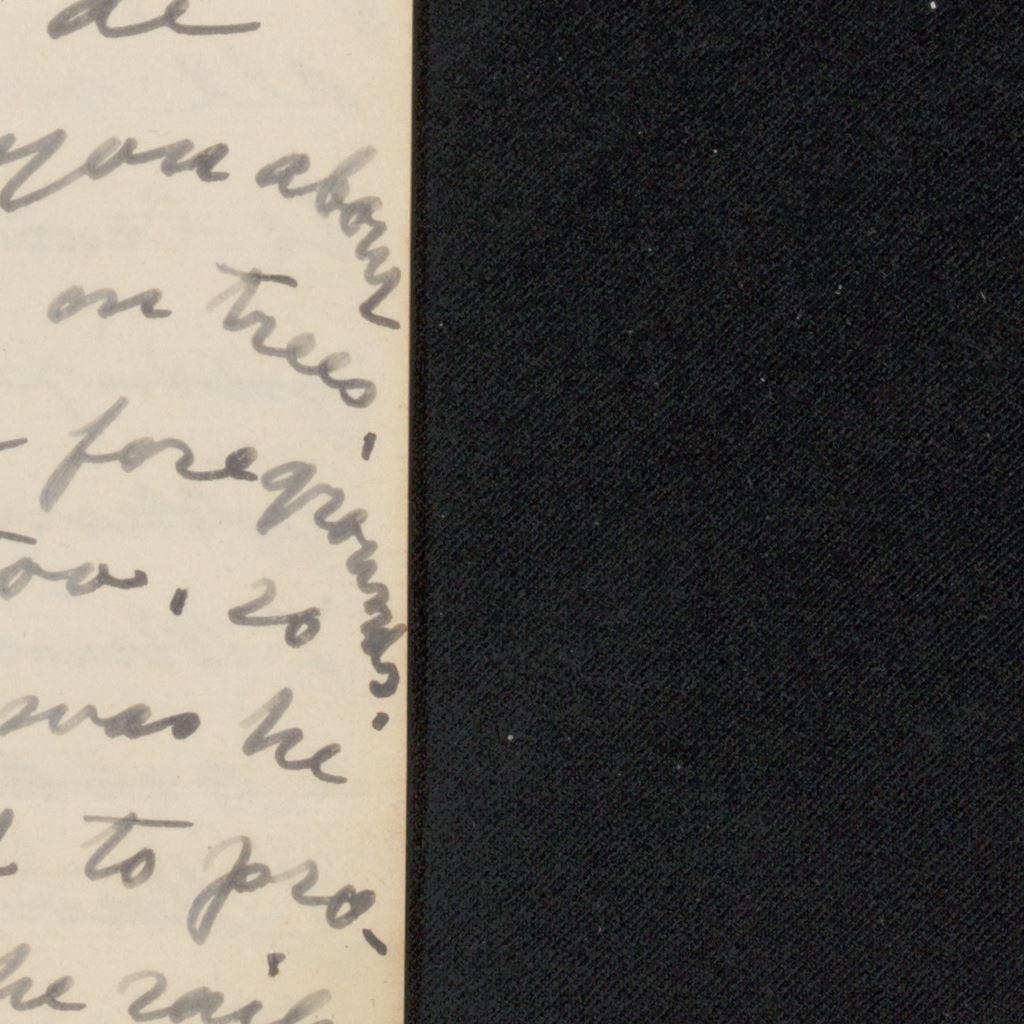 de
you about
on trees,
foregrounds.
too, so
was he
to pro-
he rail